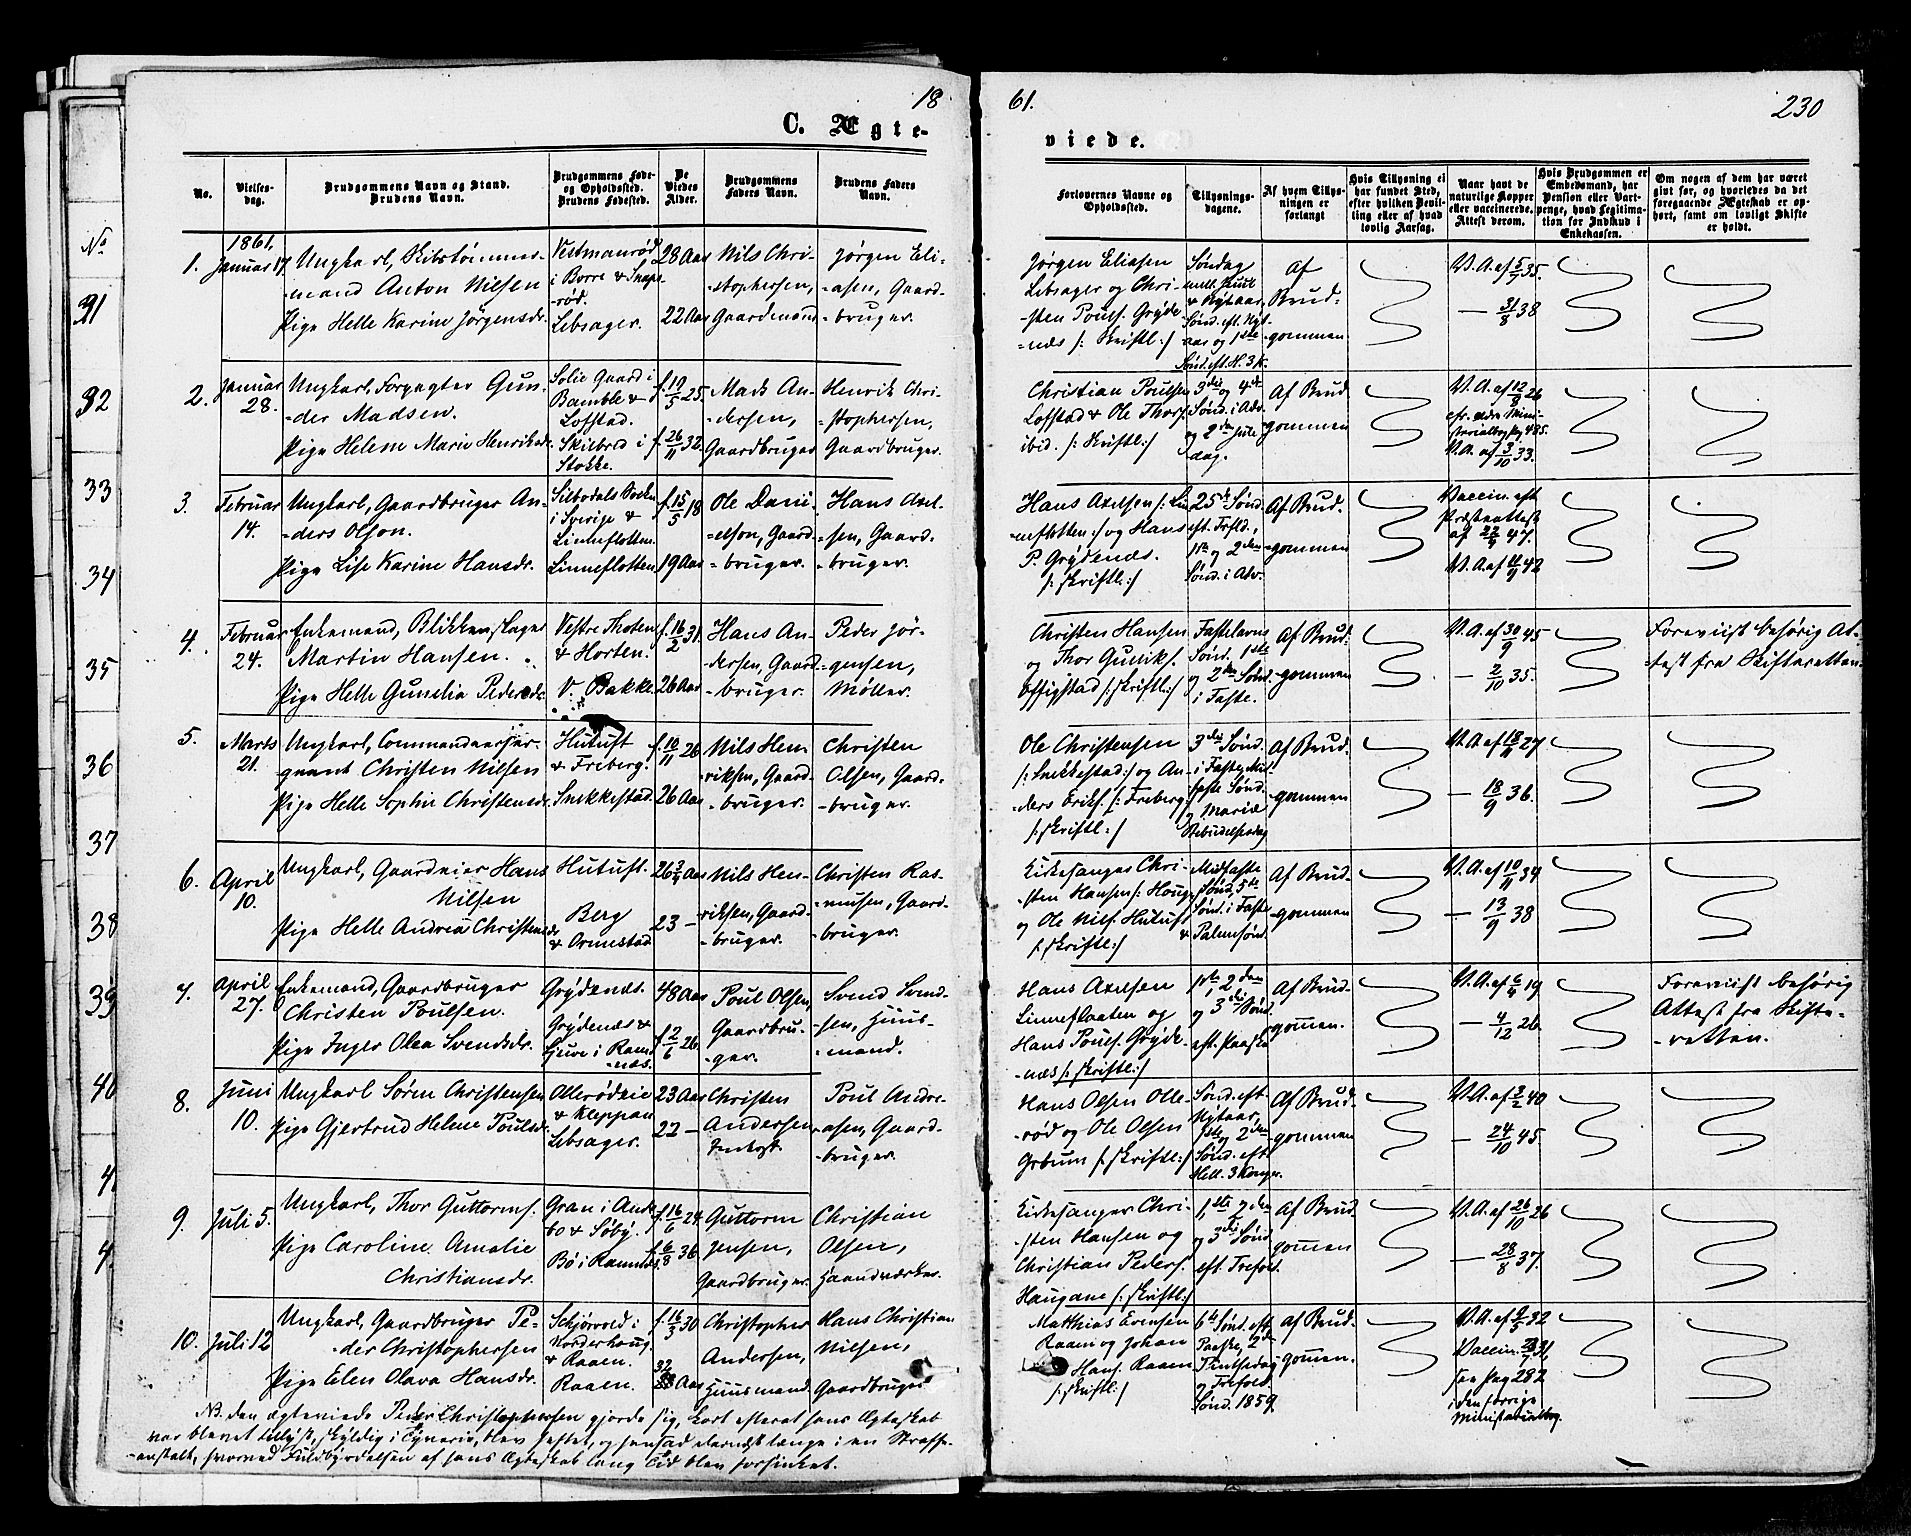 18
61.
230
C. Ægte-
viede.
No.
Vielses-
dag.
Brudgommens Navn og Stand.
Brudens Navn.
Brudgommens Føde-
og Opholdssted.
Brudens Fødested.
De
Viedes
Alder.
Brudgommens
Faders Navn.
Brudens Faders
Navn.
Forlovernes Navne og
Opholdssted.
Tillysnings-
dagene.
Af hvem Tillys-
ningen er
forlangt
Hvis Tillysning ei
har fundet Sted,
efter hvilken Bevil-
ling eller af hvad
lovlig Aarsag.
Naar havt de
naturlige Kopper
eller vaccinerede.
Attest derom.
Hvis Brudgommen er
Embedsmand, har
Pension eller Vart-
penge, hvad Legitima-
tion for Indskud i
Enkekassen.
Om nogen af dem har været
gift før, og hvorledes da det
foregaaende Ægteskab er op-
hørt, samt om lovligt Skifte
er holdt.
No
31
32
33
34
35
36
37
38
39
40
4
4
1.
1861.
Januar 17.
Ungkarl, Skibstømmer-
-mand Anton Nilsen
Pige Helle Karine Jørgensdr.
Vestmanrød
i Borre & Snaps-
-rød.
Lebsager.
28 Aar
22 Aar
Nils Chri-
-stophersen,
Gaardmand
Jørgen Eli-
-asen, Gaard-
-bruger.
Jørgen Eliasen
Lebsager og Chri-
-sten Pouls. Grýde-
-næs /: Skriftl:/
Søndag
mell. Juul
& Nytaar,
Sønd. eft. Nyt-
aar og 1ste
Sønd. eft. H. 3 K.
Af
Brud-
-gommen
V.A. af 5/7 35.
— 31/8 38
2.
Januar
28.
Ungkarl, Forpagter Gun-
-der Madsen.
Pige Helene Marie Henriksdr.
Solie Gaard i
Bamble &
Lofstad.
Skilbred i
Stokke.
f. 19/5 25.
f. 26/11 32.
Mads An-
-dersen,
Gaardbruger
Henrik Chri-
-stophersen,
Gaardbruger.
Christian Poulsen
Lofstad & Ole Thors.
ibid. /: Skriftl:/
3die og 4de
Sønd. i Adv.
og 2den Jule
dag.
Af Brud-
gommen
V.A. af 12/8 26
cfr. ældre Mini-
sterialbog pag 485.
V.A. af 3/10 33.
3.
Februar
14.
Ungkarl, Gaardbruger An-
-ders Olson.
Pige Lise Karine Hansdr.
Silbodals Sockn
i Sverige &
Linneflotten.
Linneflotten.
f. 15/5 18
19 Aar
Ole Dani-
-elson, Gaard-
-bruger.
Hans Axel-
-sen, Gaard-
-bruger.
Hans Axelsen /: Lin-
-neflotten:/ og Hans
P. Grýdenæs.
/: skriftl:/
25de Sønd.
eft. Trftd.,
1ste og 2den
Sønd. i Adv.
Af Brud-
-gommen
Vaccin. eft.
Præsteattest
af 22/9 47.
V.A. af 11/9 42
4.
Februar
24.
Enkemand, Blikkenslager
Martin Hansen.
Pige Helle Gunelia Pedersdr.
Vestre Thoten
& Horten.
V. Bakke.
f. 16/2 31.
26 Aar
Hans An-
-dersen, Gaard-
-bruger.
Peder Jør-
-gensen,
Møller.
Christen Hansen
og Thor Gulliks.
Effigstad /: skriftl:/
Fastelavns
Sønd. 1ste
og 2den Sønd.
i Faste.
Af Brud-
-gommen
V.A. af 30/9 45
— 2/10 35.
Foreviist behørig At-
-test fra Skifteretten.
5.
Marts
21.
Ungkarl, Commandeerser-
geant Christen Nilsen
Pige Helle Sophie Christensdr.
Hutust
& Freberg.
Snekkestad.
f. 10/11 26
26 Aar
Nils Hen-
-riksen, Gaard-
-bruger.
Christen
Olsen, Gaard-
-bruger.
Ole Christensen
/: Snekkestad:/ og An-
-ders Eriks. /: Freberg:/
/: skriftl:/
3die Sønd.
i Faste, Mid-
faste Sønd.
og Mariæ
Bebudelsesdag
Af Brud-
gommen
V.A. af 18/11 27
— 18/9 36.
6.
April
10.
Ungkarl, Gaardeier Hans
Nilsen
Pige Helle Andrea Christensdr.
Hutust.
Berg
& Ormestad.
26 3/4 Aar
23 —
Nils Hen-
-riksen, Gaard-
-bruger.
Christen Ras-
-mussen, Gaard-
-bruger.
Kirkesanger Chri-
-sten Hansen /: Houg
og Ole Nils. Hutust
/: skriftl:/
Midfaste
Sønd. 5te
Sønd. i Faste
& Palmesønd.
Af Brud-
-gommen
V.A. af 10/11 34
— 13/9 38
7.
April
27.
Enkemand, Gaardbruger
Christen Poulsen.
Pige Inger Olea Svendsdr.
Grýdenæs.
Grýdenæs &
Ljuve i Ram-
-næs.
48 Aar
f. 2/6 26.
Poul Olsen,
Gaardbru-
-ger.
Svend Svend-
-sen, Huus-
-mand.
Hans Axelsen
Linneflaaten og
Hans Pouls. Grýde-
-næs /: skriftl:/
1ste, 2den
og 3die Sønd.
eft. Paaske
Af Brud-
gomen.
V.A. af 6/4 19
— 4/12 26.
Foreviist behørig
Attest fra Skifte-
-retten.
8.
Juni
10.
Ungkarl Søren Christensen
Pige Gjertrud Helene Poulsdr.
Ollerødeie
& Kleppan
Lebsager.
23 Aar
22 —
Christen
Andersen
Inderst.
Poul Andre-
-asen, Gaard-
-bruger.
Hans Olsen Olle-
-rød og Ole Olsen
Grbum /: skriftl:/
Sønd. eft.
Nytaar,
1ste og 2den
Sønd. eft.
Hell. 3 Konger.
Af Brud-
gommen
V.A. af 3/2 40
— 24/10 45.
9.
Juli 5.
Ungkarl, Thor Guttorms.
Pige Caroline Amalie
Christiansdr.
Gran i Ande-
bo & Søbý.
Bø i Ramnæs.
f. 16/6 24.
f. 6/8 36
Guttorm
Jensen,
Gaardbruger.
Christian
Olsen,
Haandværker.
Kirkesanger Chri-
-sten Hansen og
Christian Peders.
Haugane /: skriftl:/
1ste, 2den
og 3die Sønd.
eft. Trefold.
Af Brud-
gomen
V.A. af 26/10 26
— 28/8 37.
10.
Juli 12
Ungkarl, Gaardbruger Pe-
-der Christophersen
Pige Elen Olava Hansdr.
Schjørvold i
Norderhoug
& Raaen.
Raaen.
f. 16/3 30
32
Aar
Christopher
Andersen,
Huusmand.
Hans Christian
Nilsen,
Gaardbruger
Matthias Evensen
Raaen og Johan
Hans. Raaen
/: skriftl:/
6te Sønd. eft.
Paaske, 2den
Pintsedag
og Trefold.
Sønd. 1859.
Af Brud-
gomen.
V.A. af 9/5 32
Vaccin. 31,
see pag 282
i den forrige
Ministerialbog.
NB. den ægteviede Peder Christophersen gjorde sig, kort efterat hans Ægteskab
var blevet tillýst, skýldig i Týverie, blev hæftet, og hensad dernæst længe i en Straffe-
-anstalt, hvorved Fuldbýrdelsen af hans Ægteskab lang Tid blev forsinket.